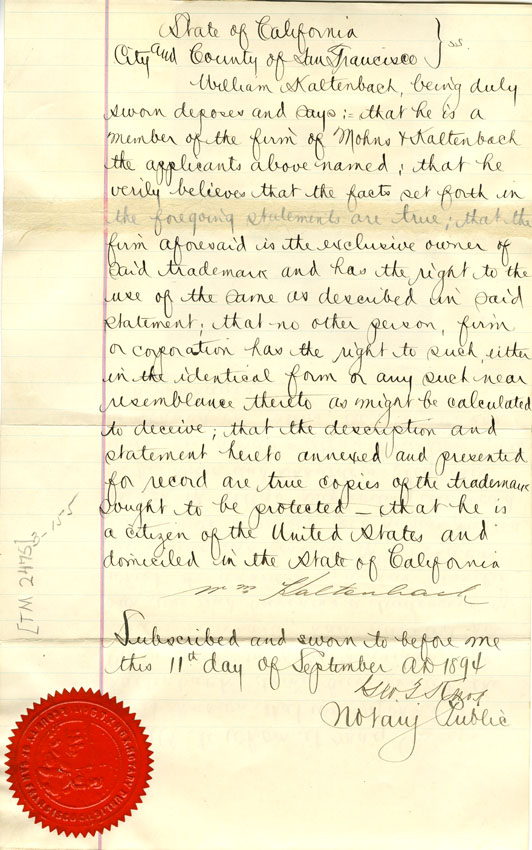 State of California
City and County of San Francisco } ss.
William Kaltenbach, being duly
sworn deposes and says:- that he is a
member of the firm of Mohns & Kaltenbach
the applicants above named; that he
verily believes that the facts set forth in
the foregoing statements are true; that the
firm aforesaid is the exclusive owner of
said trademark and has the right to the
use of the same as described in said
statement; that no other person, firm
or corporation has the right to such, either
in the identical form or any such near
resemblance thereto as might be calculated
to deceive; that the description and
statement hereto annexed and presented
for record are true copies of the trademark
sought to be protected – that he is
a citizen of the United States and
domiciled in the State of California
Wm Kaltenbach
Subscribed and sworn to before me
this 11th day of September AD 1894
Geo. Knox
Notary Public
[TM 2475]